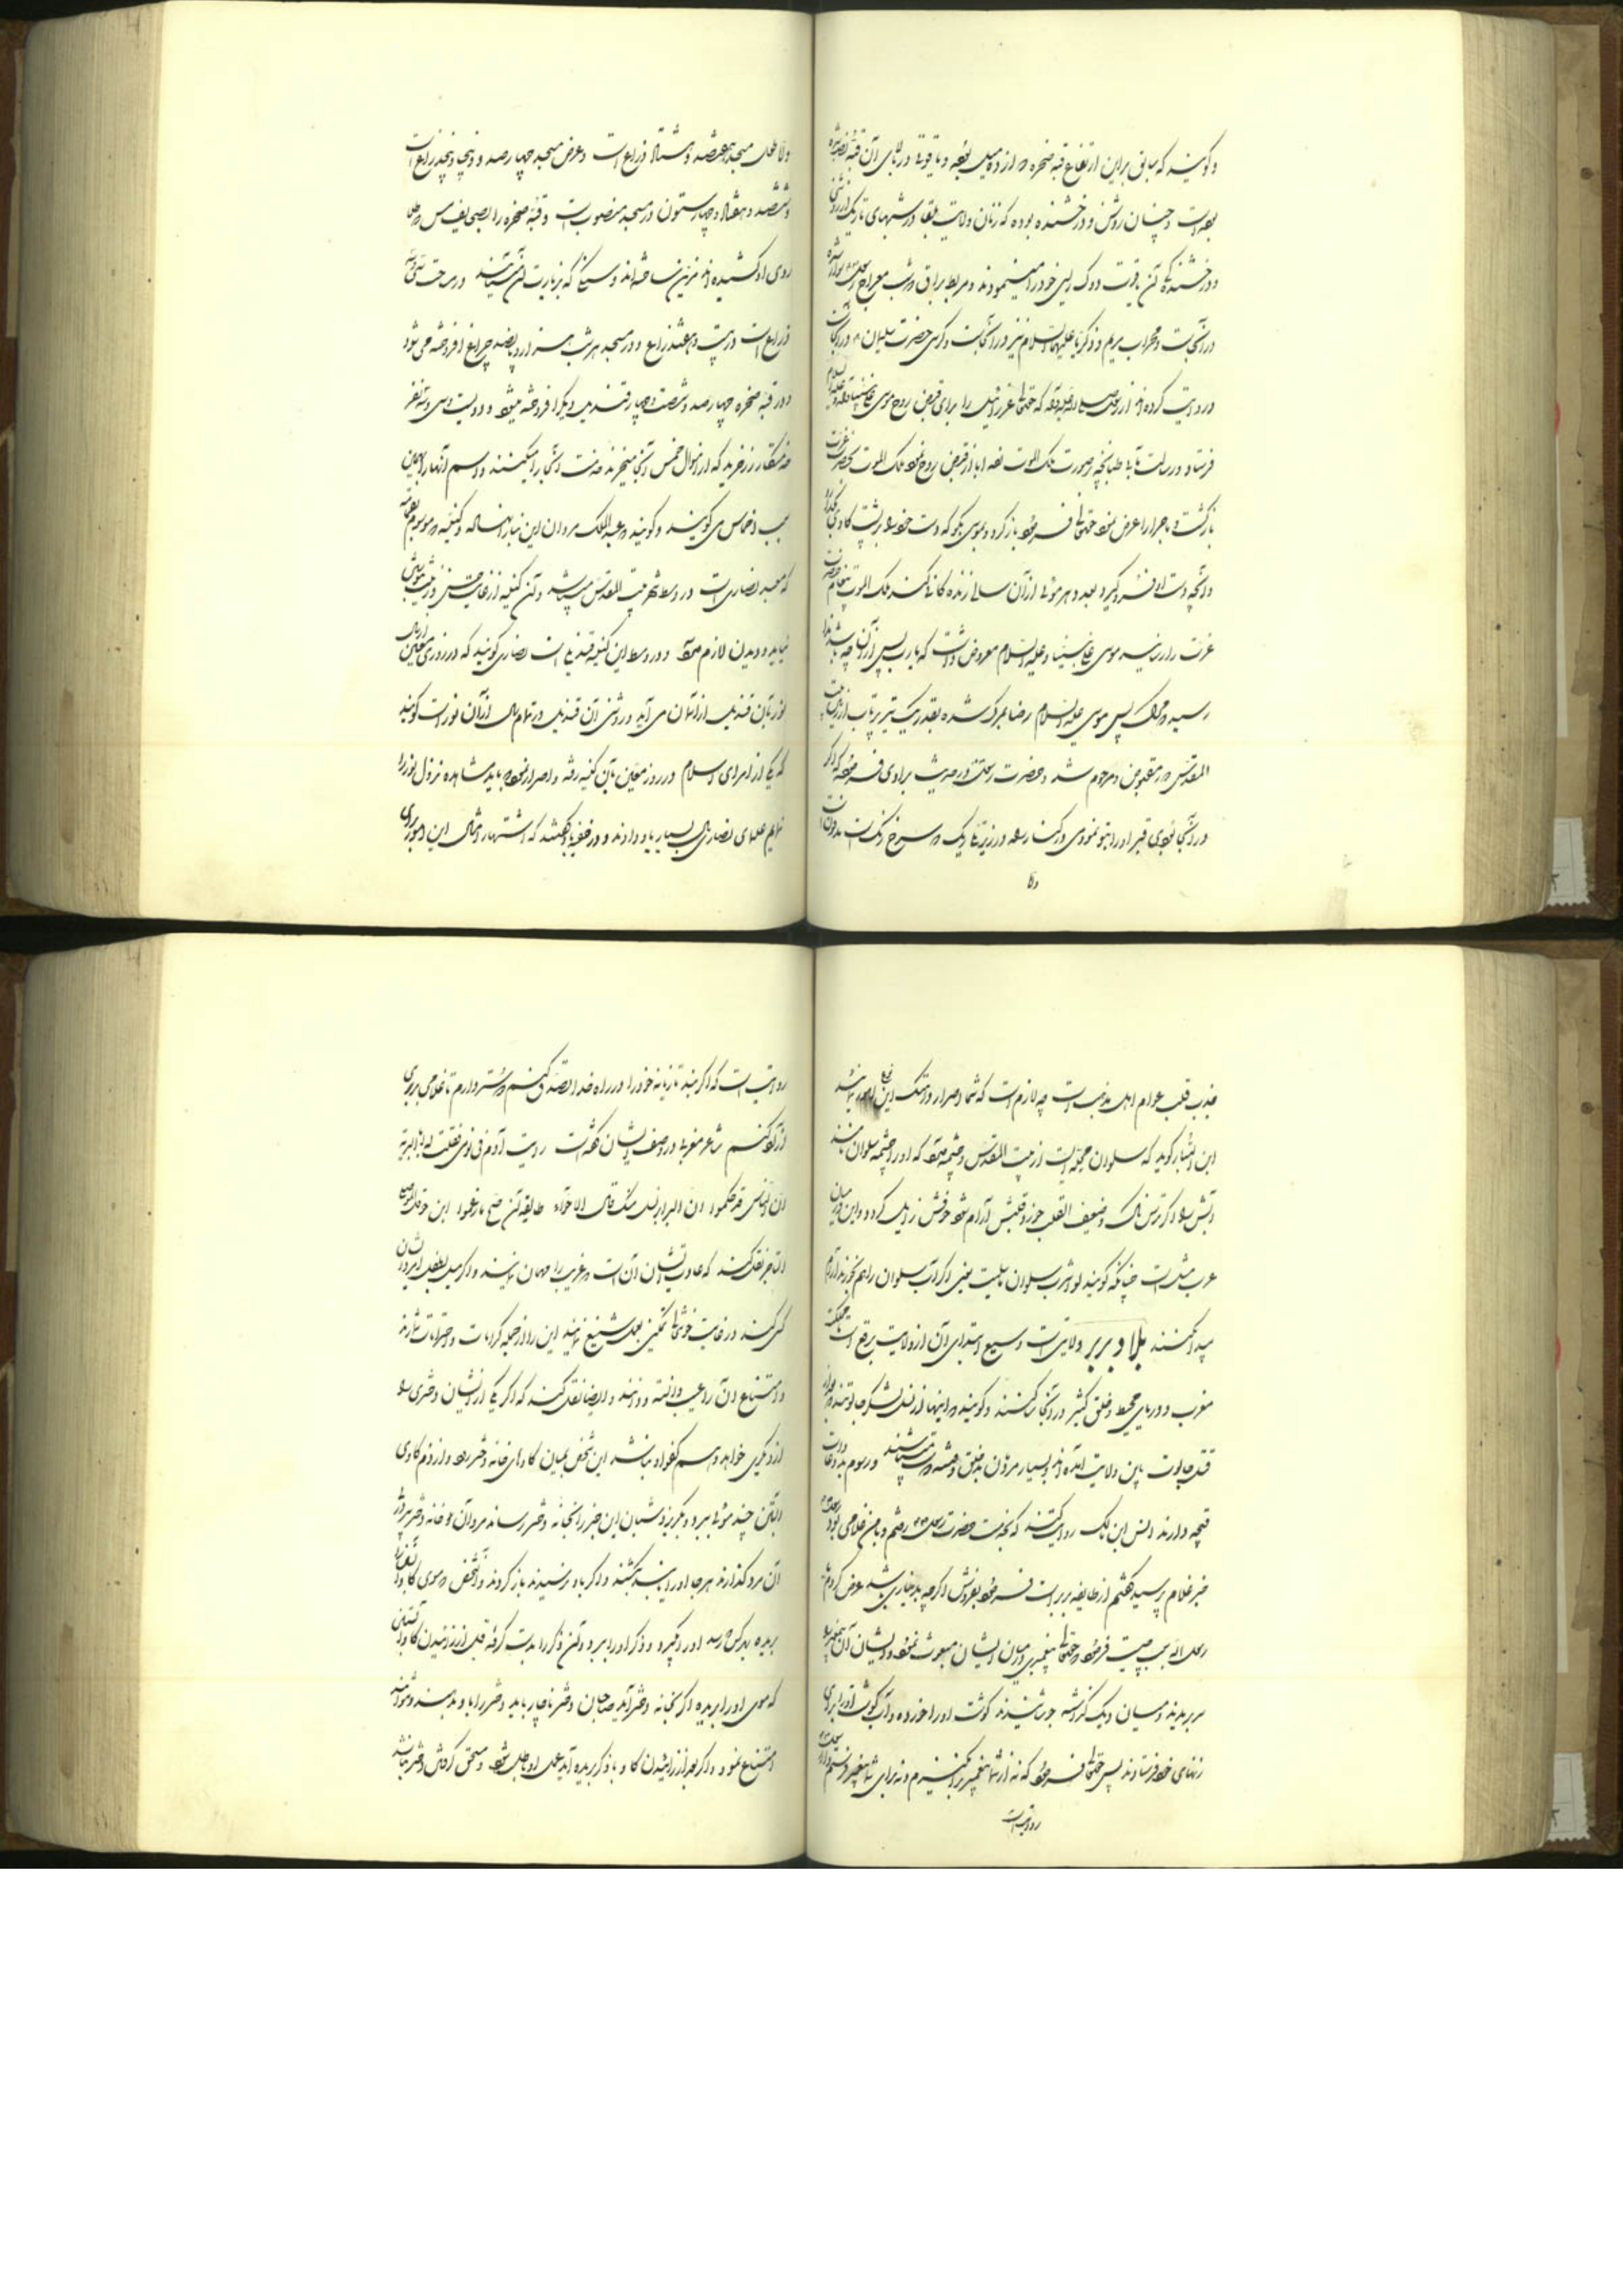 و گویند که سابق بر این ارتفاع قبه صخره دوازده میل بوده و یاقوتی در بالای آن قبه نصب شده
بوده است و چنان روشن و درخشنده بوده که زنان ولایت بلقا در شبهای تاریک از روشنی
و درخشندگی آن یاقوت دوک ریسی خود را مینمودند و مربط براق در شب معراج رسول
در آنجاست و محراب مریم و زکریا علیهما السلام نیز در آنجاست و کرسی حضرت سلیمان در آنجاست
و روایت کرده اند از رسول صلی الله علیه و آله که حقتعالی عزرائیل را برای قبض روح موسی علی نبینا و علیه السلام
فرستاد و رسالت طبانچه بر صورت ملک الموت زده ابا از قبض روح نمود ملک الموت بحضرت عزت
بازگشت و ماجرا را عرض نمود حقتعالی فرمود باز گرد و بموسی بگو که دست خود را بر پشت گاوی گذارد
و آنچه دست او فرو گیرد بعدد هر موئی از آن سالی زندگانی کند ملک الموت پیغام حضرت
عزت را رسانید موسی علی نبینا و علیه السلام معروض داشت که یا رب پس از آن چه باشد ندا
رسید مرگ پس موسی علیه السلام رضا بمرگ شده بقدر یک تیر پرتاب از بیت
المقدس مقبوض و مرحوم شد و حضرت رسول در حدیث برای فرموده که اگر
در آنجا بودی قبر او را بتو نمودی در کنار راه در زیر تل ریگ سرخ رنگ است
و لا
طول مسجد هفتصد و هشتاد ذراع است و عرض مسجد چهارصد و پنجاه و پنج ذراع است
و ششصد و هشتاد و چهار ستون در مسجد منصوب است و قبه صخره را
روی او کشیده اند مزین ساخته اند و کسانی که بزیارت آن می آیند
ذراع است در بیست و هفت ذراع و در مسجد هر شب هزار و پانصد چراغ افروخته می شود
و در قبه صخره چهارصد و شصت و چهار قندیل دیگر افروخته میشود و دویست و سی و سه نفر
خدمتکار زرخرید که از اموال خمس آنجا میخرند خدمت آنجا را میکنند و اسم آنها را باین
سبب اخماس می گویند و گویند عبد الملک مروان این بنا را نهاده و کنیسه موسوم بقمامه
که معبد نصاری است در وسط شهر بیت المقدس میباشد و آن کنیسه از غایت حسن و زینت بتوصیف
نیاید و دیدن لازم میآید و در وسط این کنیسه قندیلی است نصاری گویند که در روزی معین از سال
نور بآن قندیل از آسمان می آید و روشنی آن قندیل در تمام سال از آن نور است گویند
که یکی از امرای اسلام در روز معین بآن کنیسه رفته و اصرار نمود باید مشاهده نزول نور را
نمایم علمای نصاری مال بسیار باو دادند و در خفیه باو گفتند که اشتهار امثال این امور برای
جذب قلب عوام اهل مذهب است چه لازم است که شما اصرار در هتک این نوع امور نمائید
ابن البشار گوید که سلوان محله ایست از بیت المقدس و چشمه میباشد که او را چشمه سلوان نامند
آبش را اگر ترسناک و ضعیف القلب خورد قلبش آرام شود خوفش زایل گردد و این در میان
عرب مثل است چنانکه گویند لو اشرب سلوان ما سلیت یعنی اگر آب سلوان را هم بخورند آرام
پیدا نکنند بلاد بربر ولایتی است وسیع ابتدای آن از ولایت برقع است تا مملکت
مغرب و دریای محیط و خلق کثیر در آنجا ساکنند و گویند اینها از نسل لشکر جالوتند بعد از
قتل جالوت باین ولایت آمده اند و بسیار مردمان بدخلق و وحشی سرشت میباشند و رسوم بد و عادات
قبیحه دارند انس ابن مالک روایت کند که بخدمت حضرت رسول رفتم و با من غلامی بود رسول
خبر غلام پرسید گفتم از طایفه بربر است فرمود بفروش اگر چه بدیناری باشد عرض کردم یا
رسول الله سبب چیست فرمود حقتعالی پیغمبری در میان ایشان مبعوث نمود و ایشان آن پیغمبر را
سر بریدند و میان دیگ گذاشته جوشانیدند گوشت او را خورده و آب گوشت او را برای
زنهای خود فرستادند پس حقتعالی فرمود که نه از شما پیغمبر برانگیزم و نه برای شما پیغمبر فرستم
روایت است
روایت است که اگر بند تازیانه خود را در راه خدا تصدق کنم دوستر دارم تا غلامی بربری
آزاد کنم شاعر مغربی در وصف ایشان گفته است رایت آدم فی نومی فقلت له ابا البریة
ان الناس قد حکموا ان البرابر نسل منک قال الا حواء طالقة ان صح ما زعموا ابن حوقل الموصلی
التاجر نقل کند که عادت ایشان آن است غریب را مهمان نمایند و اگر میل بفعل امردان
کسی کند در غایت خوشحالی تمکین بعمل شنیع نمایند این را از جمله کرامات و احترامات شمارند
و امتناع آن را عیب دانسته و دانند و ایضا نقل کند که اگر یکی از ایشان دختری را
از دیگری خواهد و هم کفو او نباشد این شخص بمیان گاوهای خانه دختر رود و از دم گاوی
آبستن چند موئی ببرد و بگریزد شبان این خبر را بخانه دختر رساند مردان خانه دختر بر اثر
آن مرد گذارند هر جا او را یابند بکشند و اگر باو نرسیدند باز گردند و آنشخص موی گاو را
بریده بهر کس رسد او را بگیرد و ذکر او را ببرد و آن ذکر را بدست گرفته قبل از زائیدن گاو آبستنی
که موی او را بریده اگر بخانه دختر آید صاحبان دختر ناچار باید دختر را باو بدهند و نتوانند
امتناع نمود و اگر بعد از زائیدن گاو با ذکر بریده آید عمل او باطل شود و مستحق گرفتن دختر نباشد